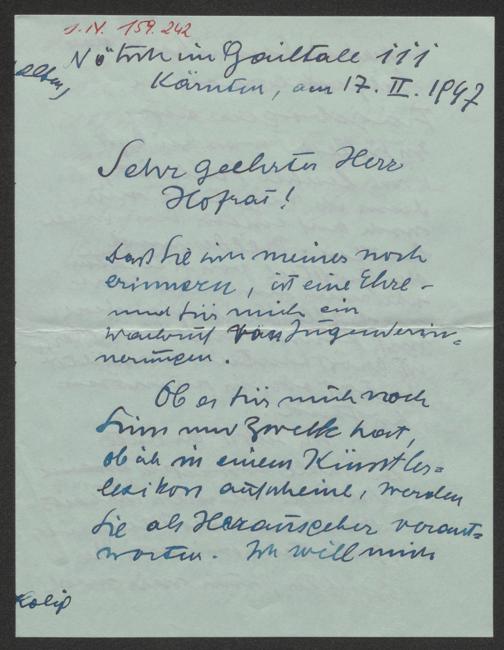 J.N. 159.242
Nötsch im Gailtale 111
Kärnten, am 17. II. 1947
Sehr geehrter Herr
Hofrat!
Daß Sie sich meiner noch
erinnern, ist eine Ehre -
und für mich ein
Wachruf von Jugenderin=
nerungen.
Ob es für mich noch
Sinn und Zweck hat,
ob ich in einem Künstler=
lexikon aufscheine, werden
Sie als Herausgeber verant=
worten. Ich will mich